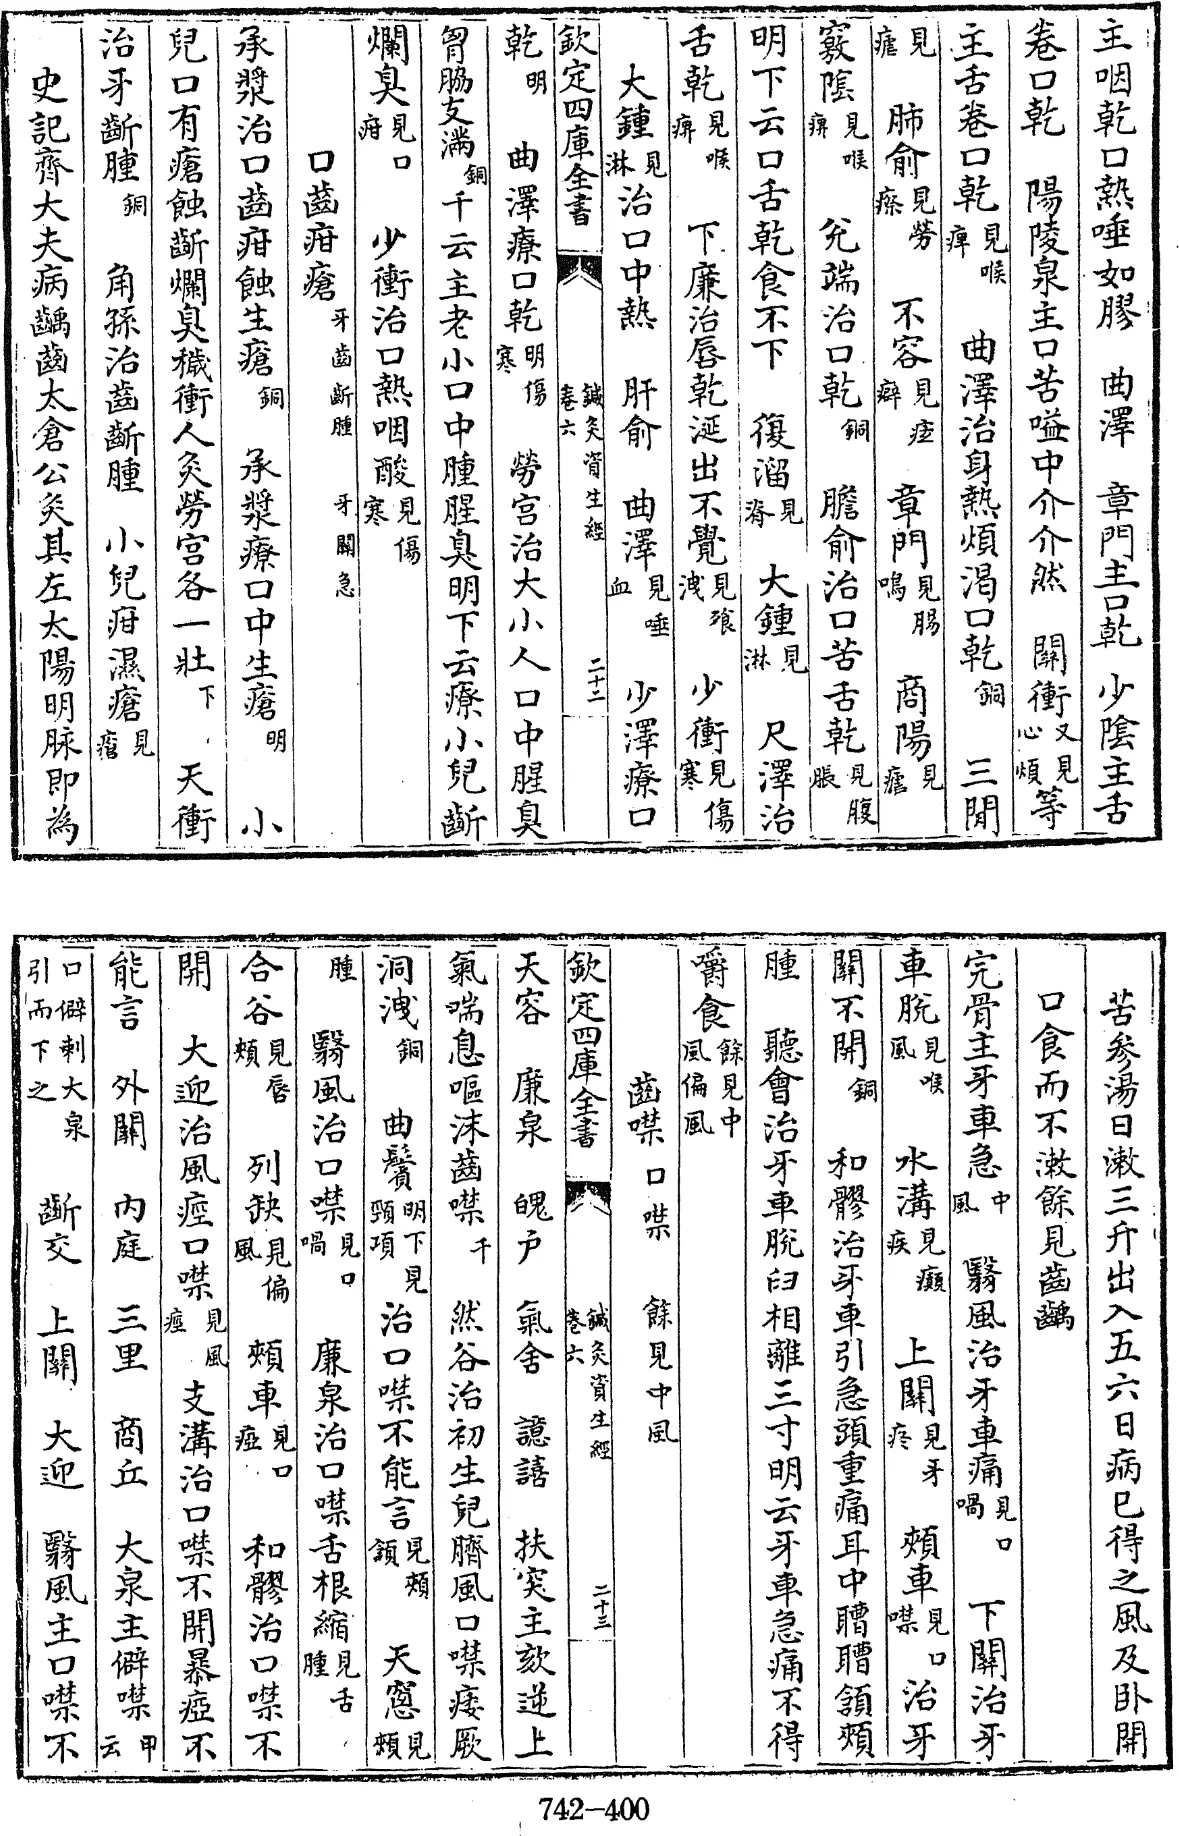 主咽乾口熱唾如膠　曲澤　章門主口乾　少陰主舌
卷口乾　陽陵泉主口苦嗌中介介然　關衝又見心煩等
主舌卷口乾見喉痺　曲澤治身熱煩渴口乾銅　三間
見瘧　肺俞見勞瘵　不容見痃癖　章門見腸鳴　商陽見瘧
竅陰見喉痹　兊端治口乾銅　膽俞治口苦舌乾見腹脹
明下云口舌乾食不下　復溜見脊　大鍾見淋　尺澤治
舌乾見喉痹　下廉治唇乾涎出不覺見飱洩　少衝見傷寒
大鍾見淋治口中熱　肝俞　曲澤見唾血　少澤療口
欽定四庫全書　鍼灸資生經卷六　二十二
乾明　曲澤療口乾明傷寒　勞宮治大小人口中腥臭
胷脇支滿銅千云主老小口中腫腥臭明下云療小兒齗
爛臭見口疳　少衝治口熱咽酸見傷寒
口齒疳瘡牙齒齗腫　牙關急
承漿治口齒疳蝕生瘡銅　承漿療口中生瘡明　小
兒口有瘡蝕齗爛臭穢衝人灸勞宮各一壯下　天衝
治牙齗腫銅　角孫治齒齗腫　小兒疳濕瘡見瘡
史記齊大夫病齲齒太倉公灸其左太陽明脉即為
苦參湯日漱三升出入五六日病已得之風及卧開
口食而不漱餘見齒齲
完骨主牙車急中風　翳風治牙車痛見口喎　下關治牙
車脫見喉風　水溝見癲疾　上關見牙疼　頰車見口噤治牙
關不開銅　和髎治牙車引急頭重痛耳中嘈嘈頷頰
腫　聽會治牙車脫臼相離三寸明云牙車急痛不得
嚼食餘見中風偏風
齒噤口噤　餘見中風
欽定四庫全書　鍼灸資生經卷六　二十三
天容　廉泉　魄户　氣舍　譩譆　扶突主欬逆上
氣喘息嘔沫齒噤千　然谷治初生兒臍風口噤痿厥
洞洩銅　曲鬢明下見頸項治口噤不能言見頰頷　天窻見頰
腫　翳風治口噤見口喎　廉泉治口噤舌根縮見舌腫
合谷見唇頰　列缺見偏風　頰車見口瘂　和髎治口噤不
開　大迎治風痙口噤見風痙　支溝治口噤不開暴瘂不
能言　外關　内庭　三里　商丘　大泉主僻噤甲云
口僻刺大泉引而下之　齗交　上關　大迎　翳風主口噤不
742-400